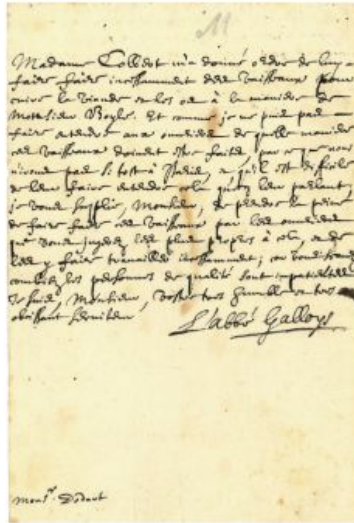 M
Madame Colbert m'a donné ordre de luy
faire faire incessamment des vaisseaux pour
cuire la viande et les os à la maniere de
Monsieur Boyle. Et comme je ne puis pas
faire entendre aux ouvriers de quelle maniere
ces vaisseaux doivent estre faits, parce que nous
n'irons pas si tost à Paris, et qu'il est difficile
de leur faire entendre cela qu'en leur parlant,
je vous supplie, Monsieur, de prendre la peine
de faire faire ces vaisseaux par les ouvriers
que vous jugerez les plus propres à cela, et de
les y faire travailler incessamment; car vous
combien les personnes de qualité sont impatientes
Je suis, Monsieur, vostre tres humble et tres
obeissant serviteur
L'abbé Galloys
Monsr. Dodart